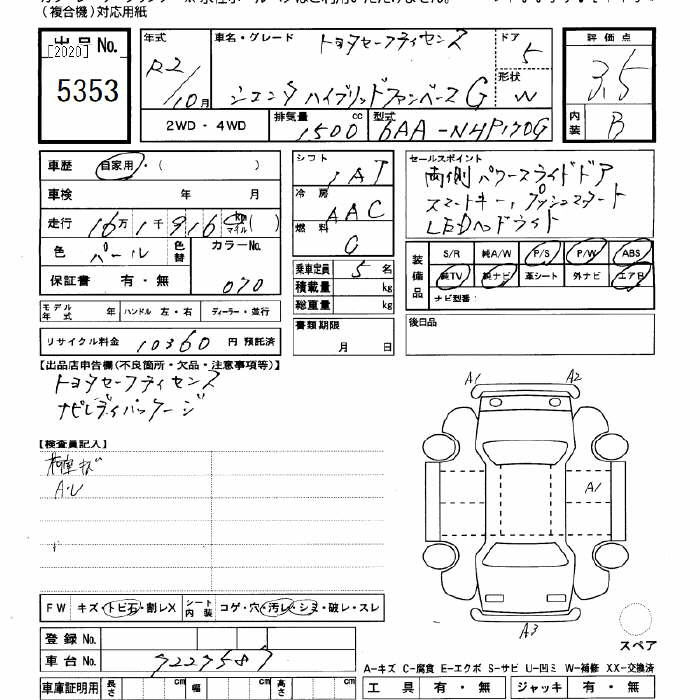 (複合機)対応用紙
出品No.
[2020]
5353
年式 R2/10月
車名・グレード トヨタセーフティセンス
シエンタ ハイブリッドファンベースG
ドア 5
形状 W
2WD・4WD 排気量 1500 cc 型式 6AA-NHP170G
評価点 3.5
内装 B
車歴 自家用・( )
車検 年 月
走行 16万1千916 km マイル ( )
色 パール 色替 カラーNo. 070
保証書 有・無
モデル年式 年 ハンドル 左・右 ディーラー・並行
リサイクル料金 10360 円 預託済
シフト IAT
冷房 AAC
燃料 G
乗車定員 5 名
積載量 kg
総重量 kg
書類期限 月 日
セールスポイント
両側パワースライドドア
スマートキー、プッシュスタート
LEDヘッドライト
装備品 S/R 純A/W P/S P/W ABS
純TV 純ナビ 革シート 外ナビ エアB
ナビ型番:
後日品
【出品店申告欄(不良箇所・欠品・注意事項等)】
トヨタセーフティセンス
ナビレディパッケージ
【検査員記入】
A・U
A1 A2
A1
A3
スペア
FW キズ・トビ石・割レX シート内装 コゲ・穴・汚レ・シミ・破レ・スレ
登録No.
車台No. 7227587
A-キズ C-腐食 E-エクボ S-サビ U-凹ミ W-補修 XX-交換済
車庫証明用 長さ cm 幅 cm 高さ cm
工具 有・無 ジャッキ 有・無